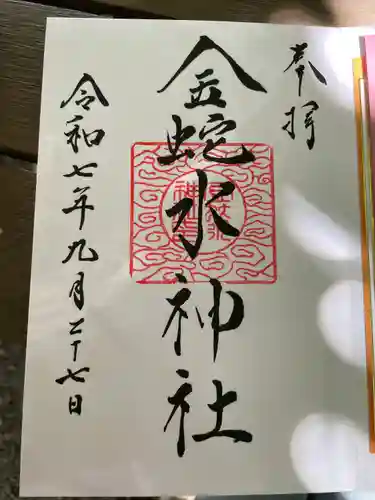 奉拝
金蛇水神社
令和七年九月二十七日